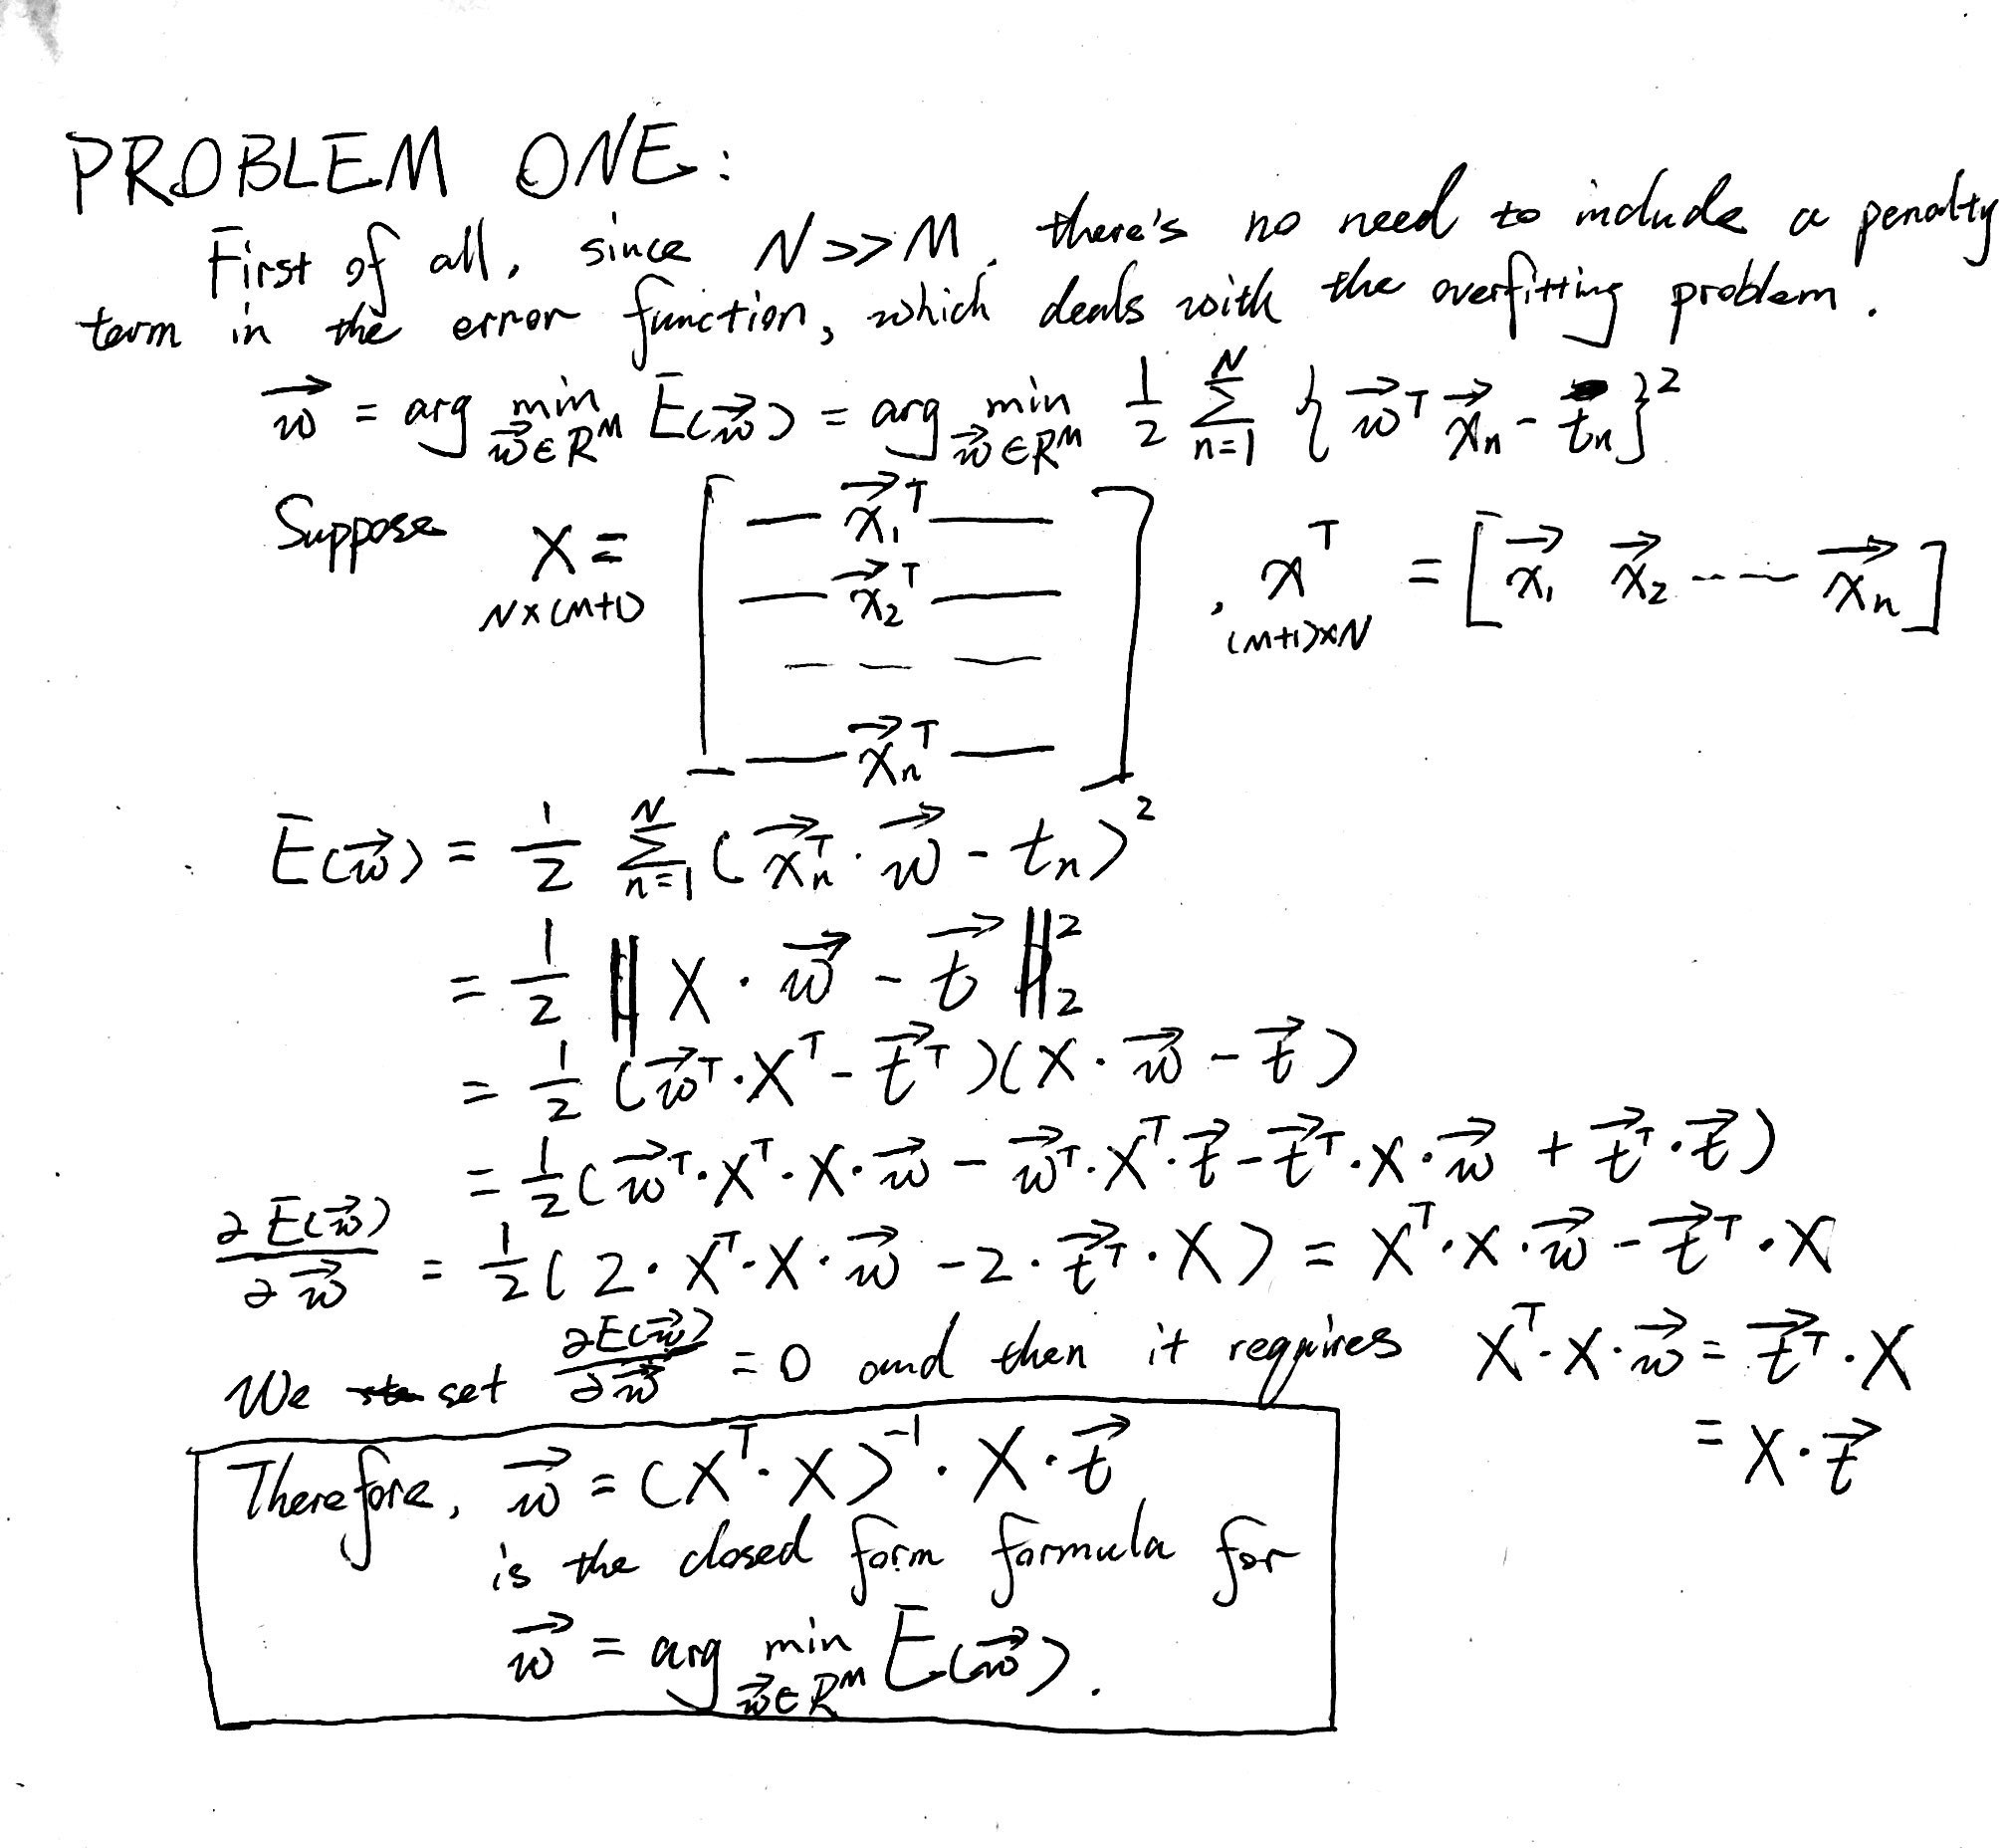 PROBLEM ONE:
First of all, since N >> M, there's no need to include a penalty
term in the error function, which deals with the overfitting problem.
$\vec{w} = \arg\min_{\vec{w} \in R^M} E(\vec{w}) = \arg\min_{\vec{w} \in R^M} \frac{1}{2} \sum_{n=1}^{N} \{ \vec{w}^T \vec{x}_n - t_n \}^2$
Suppose $X_{N \times (M+1)} = \begin{bmatrix} — \vec{x}_1^T — \\ — \vec{x}_2^T — \\ — — — \\ — \vec{x}_n^T — \end{bmatrix}, X^T_{(M+1) \times N} = [\vec{x}_1 \ \vec{x}_2 \ ----\ \vec{x}_n]$
$E(\vec{w}) = \frac{1}{2} \sum_{n=1}^{N} (\vec{x}_n^T \cdot \vec{w} - t_n)^2$
$= \frac{1}{2} \| X \cdot \vec{w} - \vec{t} \|_2^2$
$= \frac{1}{2} (\vec{w}^T \cdot X^T - \vec{t}^T)(X \cdot \vec{w} - \vec{t})$
$= \frac{1}{2} (\vec{w}^T \cdot X^T \cdot X \cdot \vec{w} - \vec{w}^T \cdot X^T \cdot \vec{t} - \vec{t}^T \cdot X \cdot \vec{w} + \vec{t}^T \cdot \vec{t})$
$\frac{\partial E(\vec{w})}{\partial \vec{w}} = \frac{1}{2} (2 \cdot X^T \cdot X \cdot \vec{w} - 2 \cdot \vec{t}^T \cdot X) = X^T \cdot X \cdot \vec{w} - \vec{t}^T \cdot X$
We set $\frac{\partial E(\vec{w})}{\partial \vec{w}} = 0$ and then it requires $X^T \cdot X \cdot \vec{w} = \vec{t}^T \cdot X$
$= X \cdot \vec{t}$
Therefore, $\vec{w} = (X^T \cdot X)^{-1} \cdot X \cdot \vec{t}$
is the closed form formula for
$\vec{w} = \arg\min_{\vec{w} \in R^M} E(\vec{w})$.